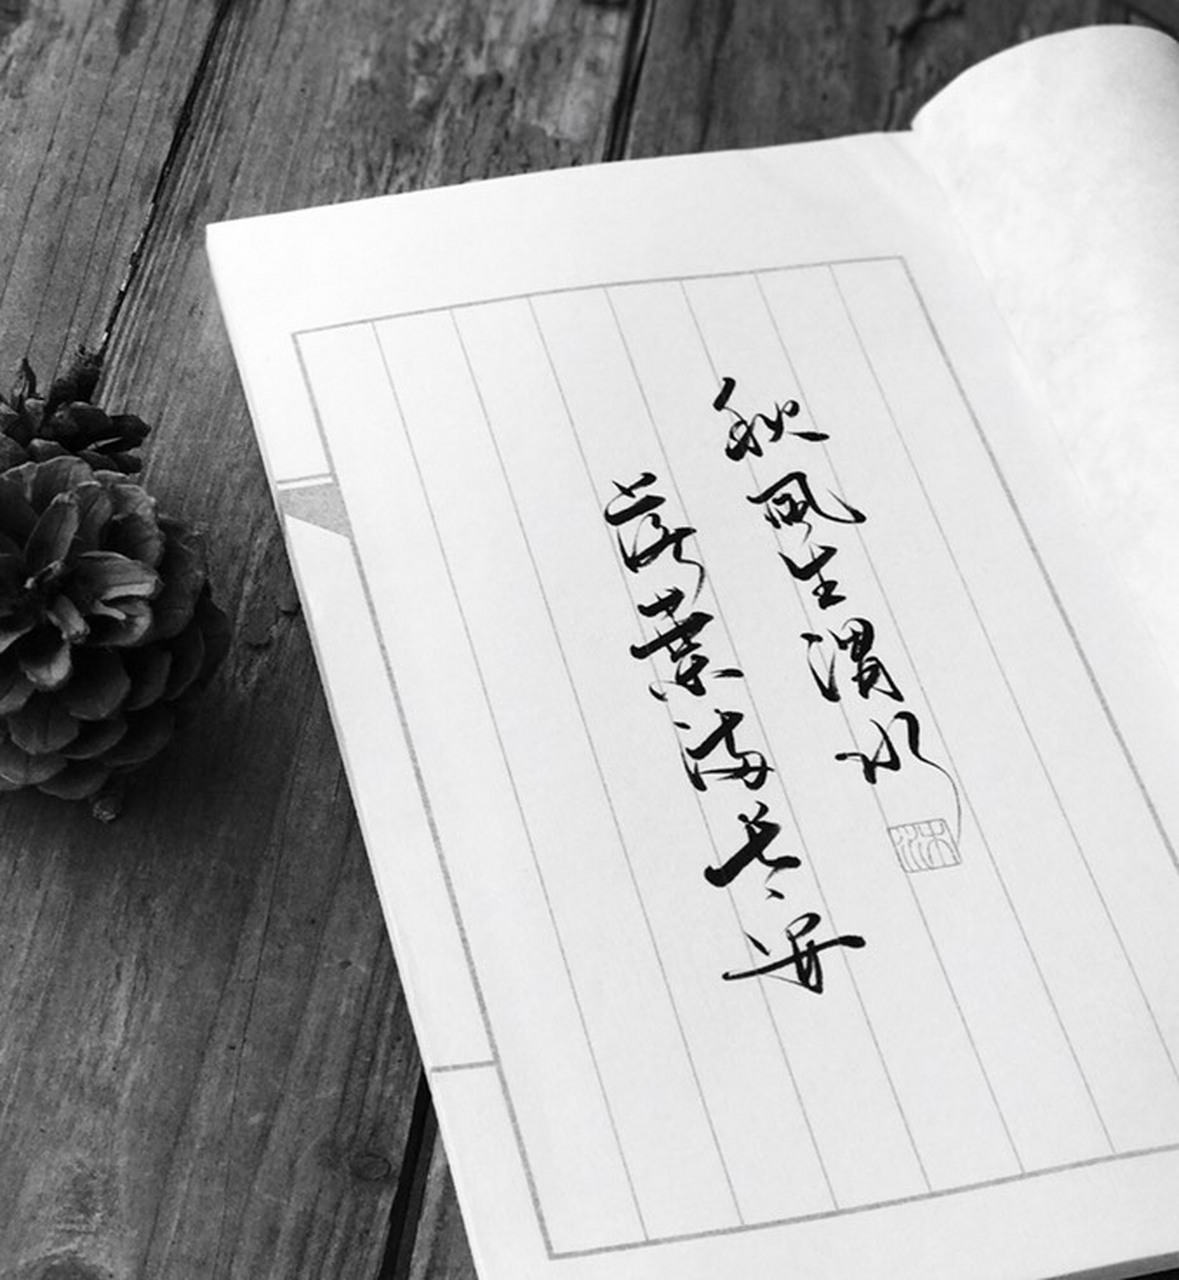 秋风生渭水
落葉满长安